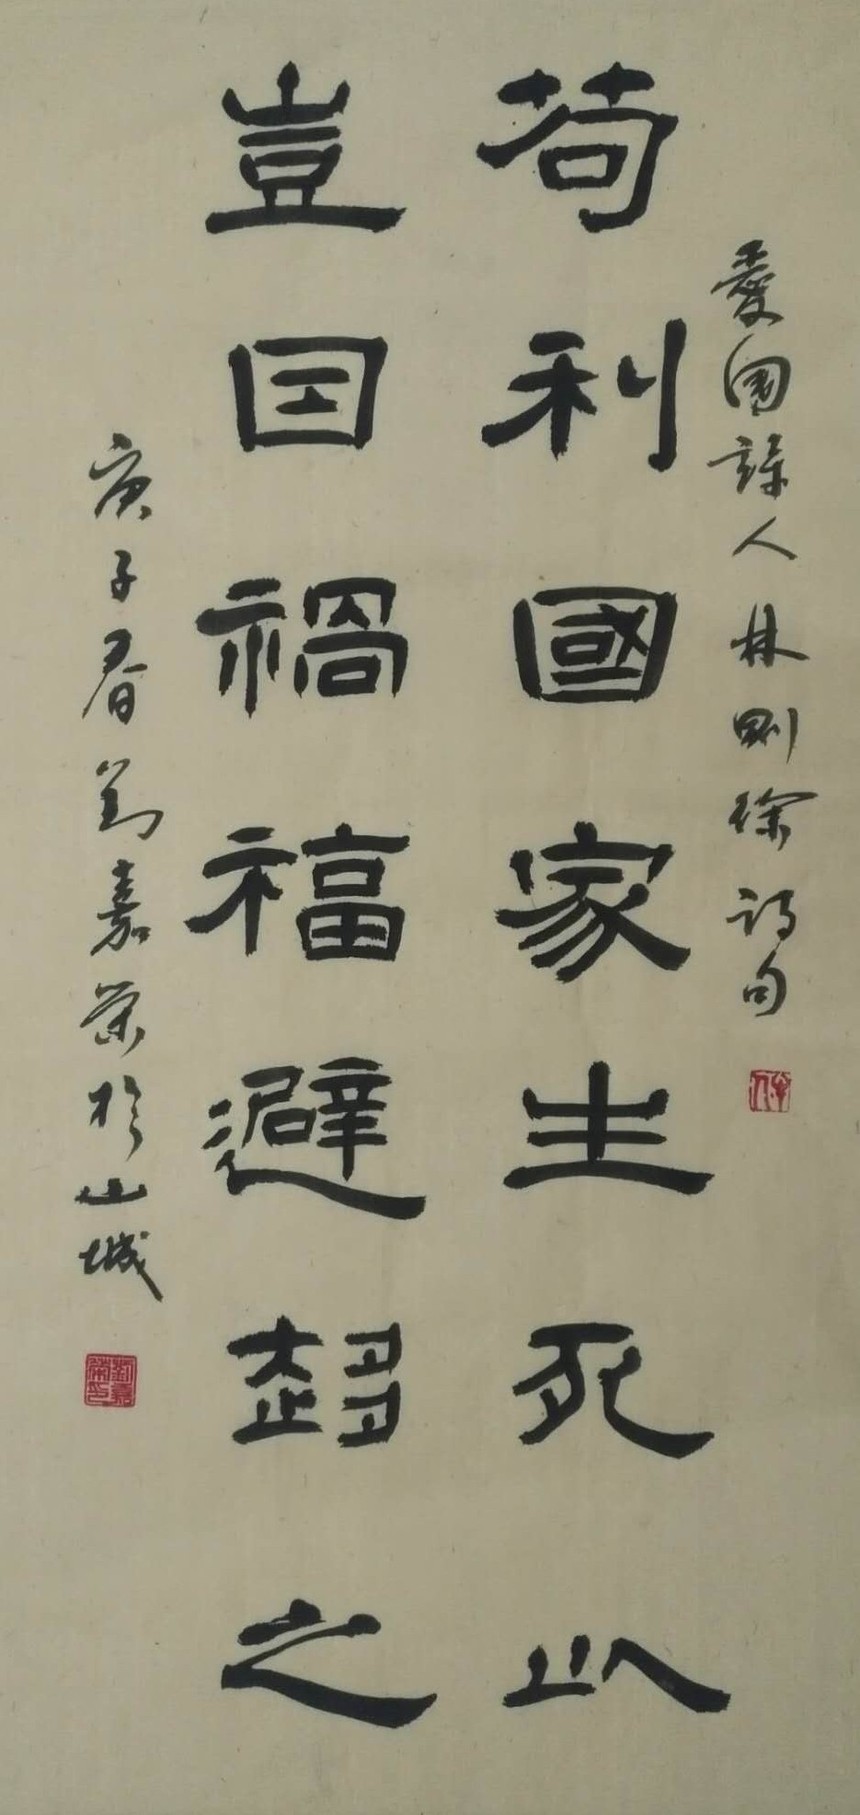 愛國詩人林則徐詩句
苟利國家生死以
豈因禍福避趋之
庚子春劉嘉荣於山城
劉嘉榮印